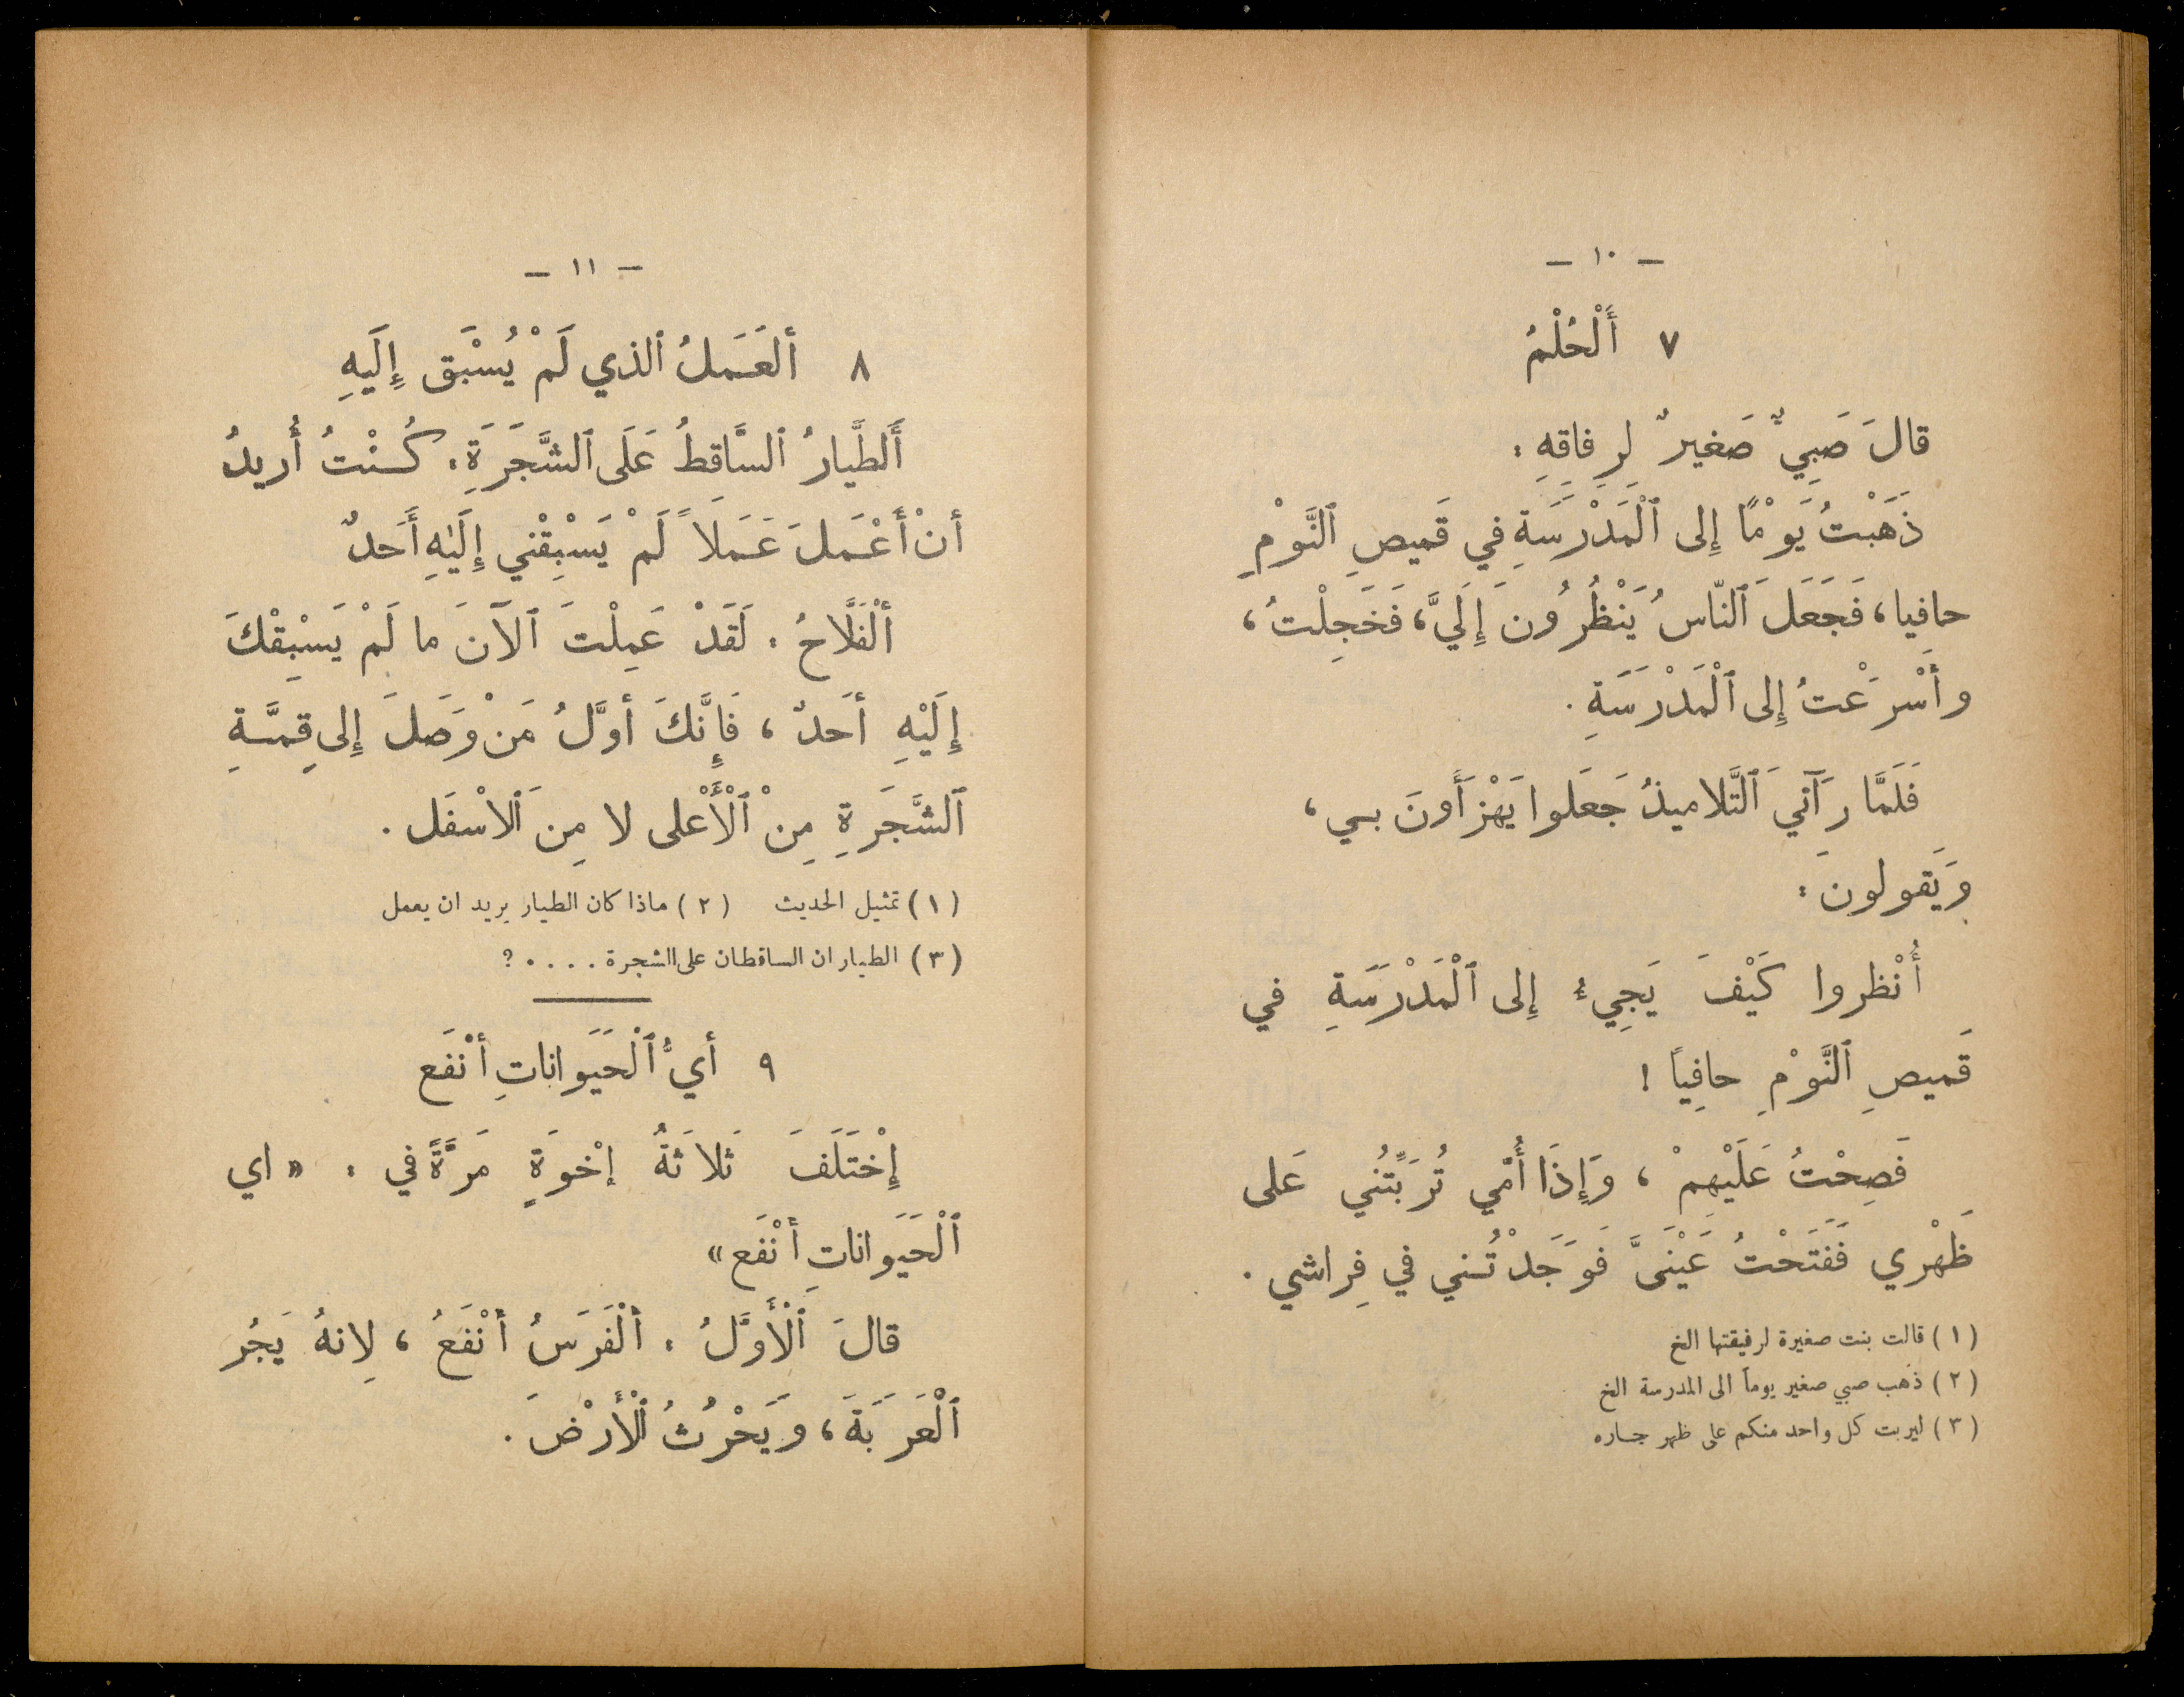 — ١٠ —
٧ أَلْحُلْمُ
قالَ صَبِيٌّ صَغيرٌ لِرِفاقِهِ :
ذَهَبْتُ يَوْمًا إِلى ٱلْمَدْرَسَةِ في قَميصِ ٱلنَّوْمِ
حافِيا، فَجَعَلَ ٱلنّاسُ يَنْظُرُونَ إِلَيَّ، فَخَجِلْتُ،
وأَسْرَعْتُ إِلى ٱلْمَدْرَسَةِ .
فَلَمَّا رَآنيَ ٱلتَّلاميذُ جَعَلوا يَهْزَأَونَ بـي ،
وَيَقولونَ :
أُنْظروا كَيْفَ يَجِيءُ إِلى ٱلْمَدْرَسَةِ في
قَميصِ ٱلنَّوْمِ حافِياً !
فَصِحْتُ عَلَيْهِمْ ، وَإِذَا أُمّي تُرَبِّتُني عَلى
ظَهْري فَفَتَحْتُ عَيْنَيَّ فَوَجَدْتُـني في فِراشي .
(١) قالت بنت صغيرة لرفيقتها الخ
(٢) ذهب صبي صغير يوماً الى المدرسة الخ
(٣) ليربت كل واحد منكم على ظهر جـاره
— ١١ —
٨ ألعَـمَلُ ٱلذي لَمْ يُسْبَق إِلَيهِ
أَلطَّيارُ ٱلسَّاقطُ عَلَى ٱلشَّجَرَةِ : كُـنْتُ أُريدُ
أنْ أَعْـمَلَ عَـمَلاً لَمْ يَسْبِقْني إِلَيْهِ أَحَدٌ
أَلْفَلَّاحُ : لَقَدْ عَمِلْتَ ٱلآنَ ما لَمْ يَسْبِقْكَ
إِلَيْهِ أحَدٌ ، فَإِنَّكَ أوَّلُ مَنْ وَصَلَ إِلى قِمَّـةِ
ٱلشَّجَرَةِ مِنْ ٱلْأَعْلى لا مِنَ ٱلاسْفَل .
(١) تمثيل الحديث (٢) ماذا كان الطيار يريد ان يعمل
(٣) الطياران الساقطان على الشجرة . . . . ؟
٩ أيُّ ٱلْحَيَوَاناتِ أنْفَع
إِخْتَلَفَ ثَلاثَةُ إخْوَةٍ مَرَّةً في : « اي
ٱلْحَيَوَاناتِ أنْفَع »
قالَ ٱلْأَوَّلُ : ألْفَرَسُ أنْفَعُ ، لِانهُ يَجُر
ٱلْعَرَبَةَ ، وَيَحْرُثُ ٱلْأَرْضَ .